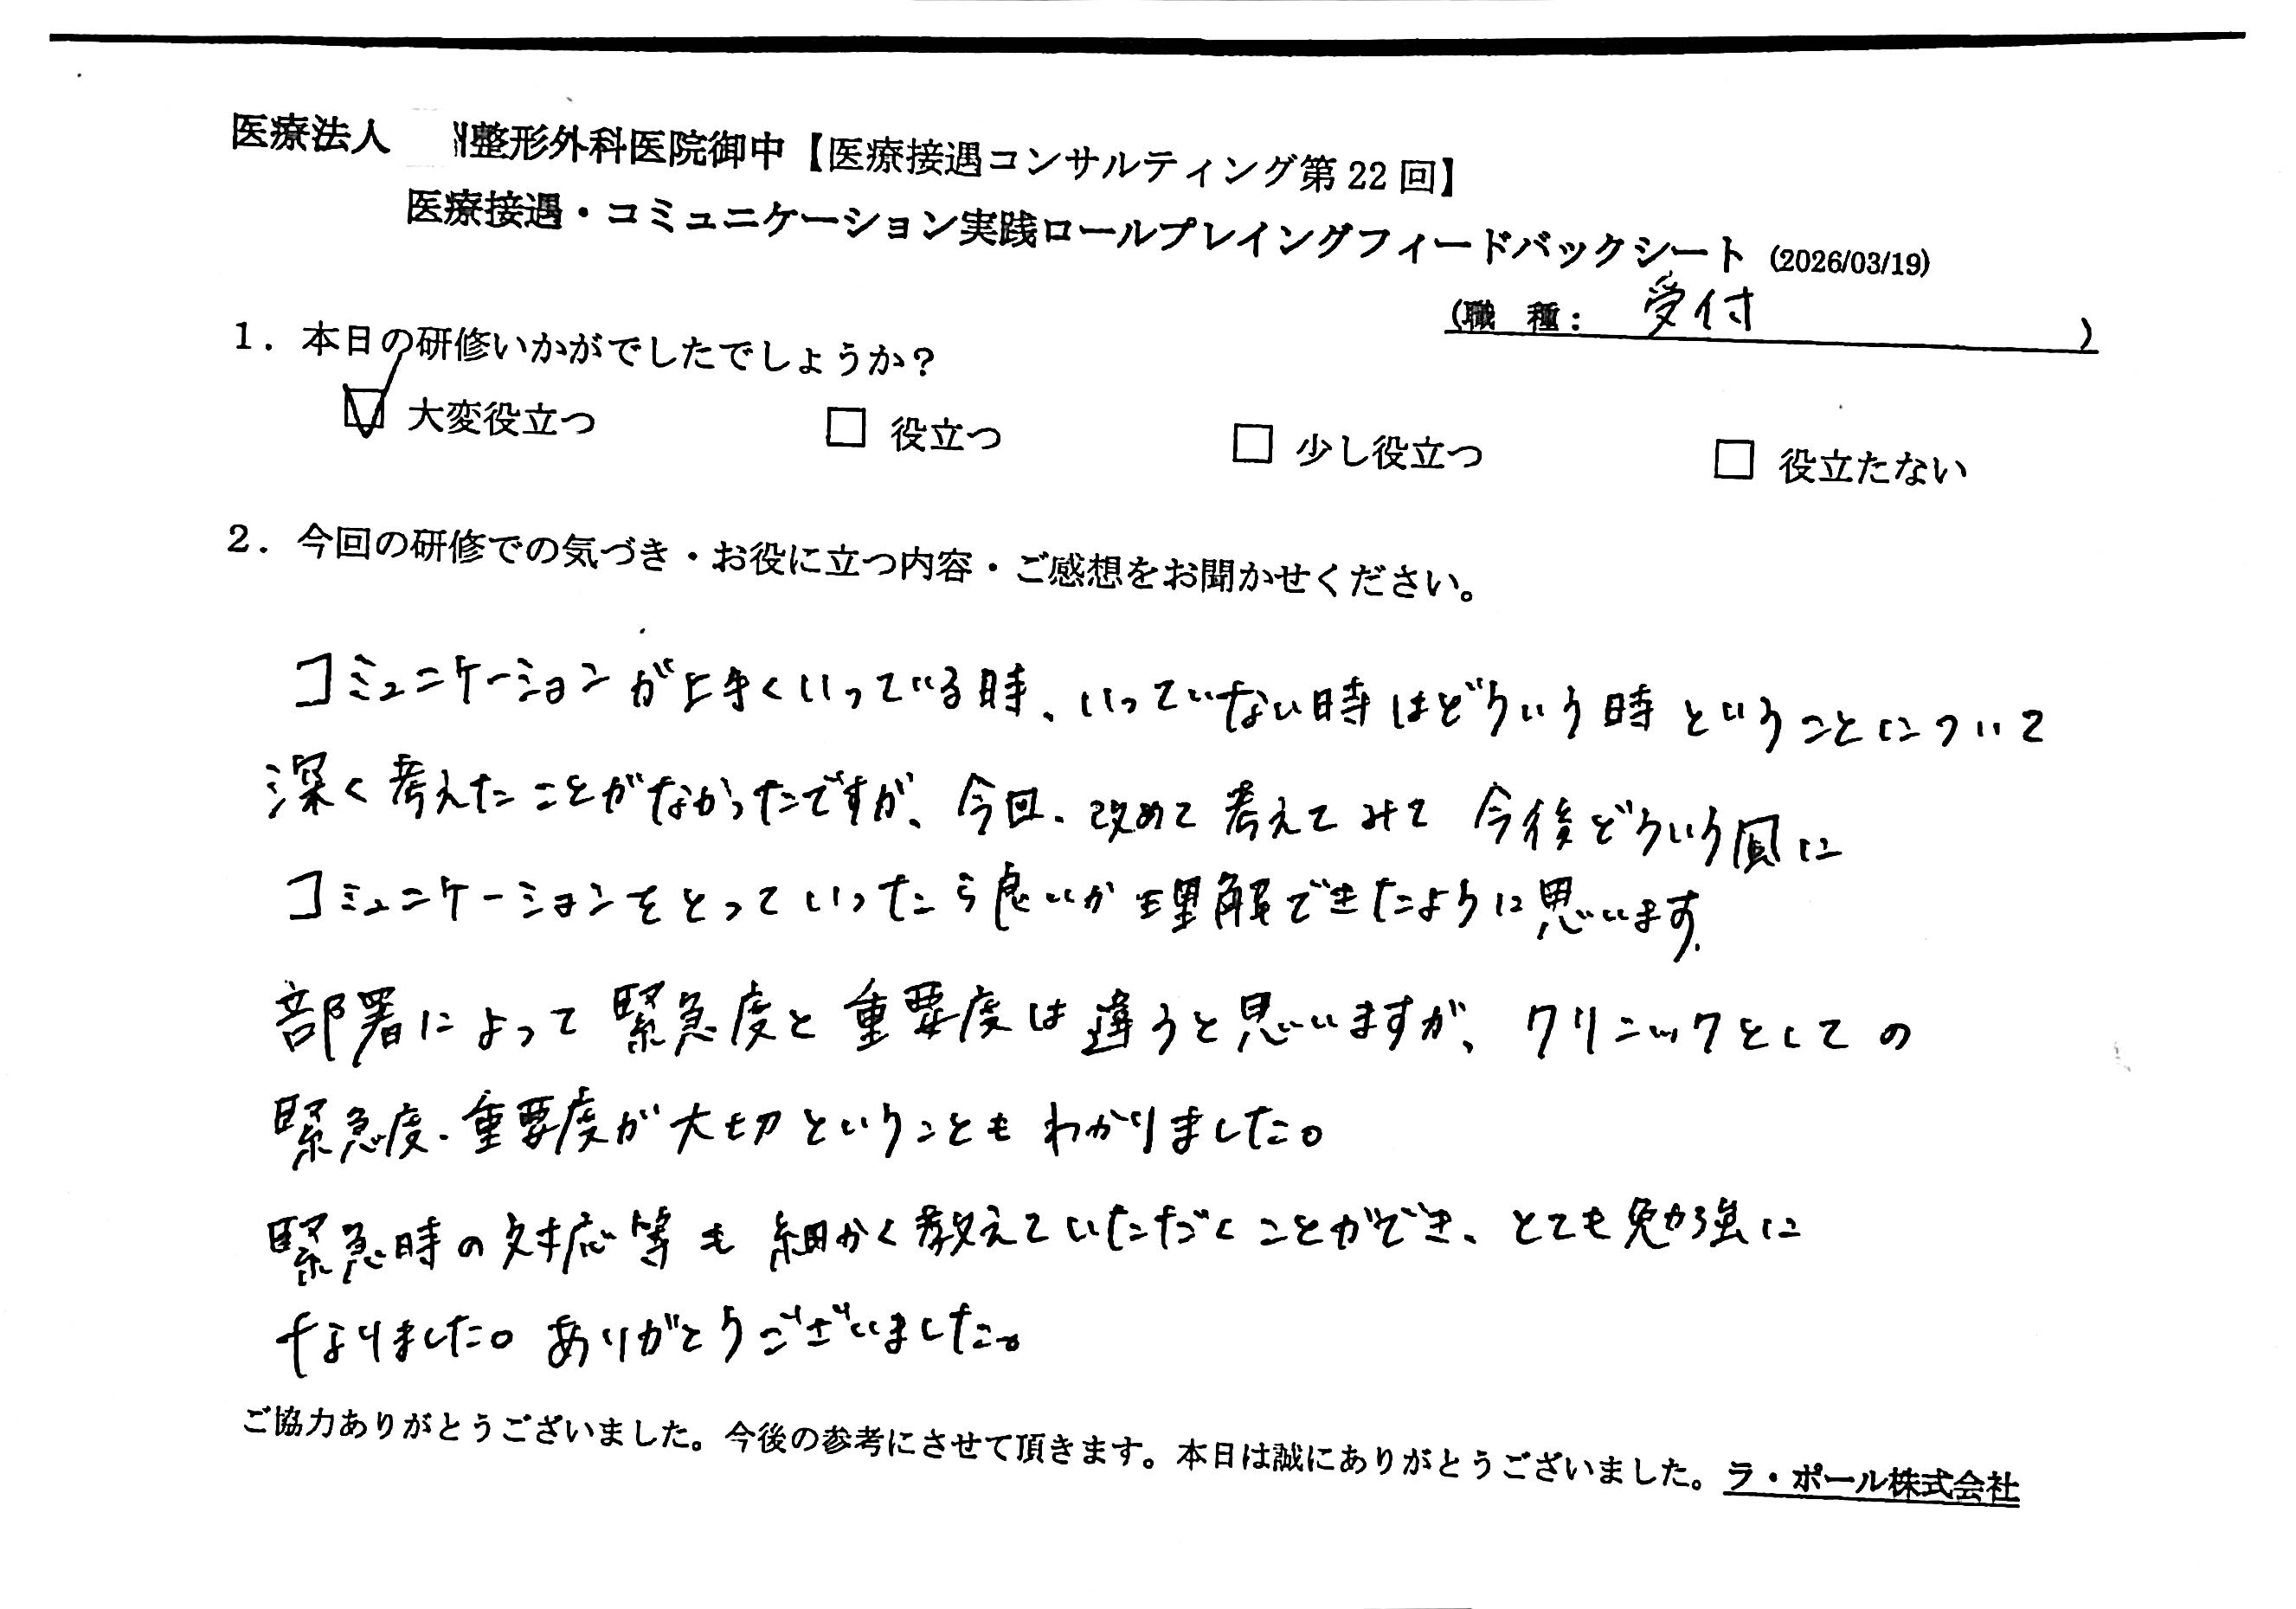 医療法人 整形外科医院御中【医療接遇コンサルティング第22回】
医療接遇・コミュニケーション実践ロールプレイングフィードバックシート (2026/03/19)
(職 種: 受付 )
1. 本日の研修いかがでしたでしょうか?
☑ 大変役立つ □ 役立つ □ 少し役立つ □ 役立たない
2. 今回の研修での気づき・お役に立つ内容・ご感想をお聞かせください。
コミュニケーションが上手くいっている時、いっていない時はどういう時ということについて
深く考えたことがなかったですが、今回、改めて考えてみて今後どういう風に
コミュニケーションをとっていったら良いか理解できたように思います。
部署によって緊急度と重要度は違うと思いますが、クリニックとしての
緊急度、重要度が大切ということもわかりました。
緊急時の対応等も細かく教えていただくことができ、とても勉強に
なりました。ありがとうございました。
ご協力ありがとうございました。今後の参考にさせて頂きます。本日は誠にありがとうございました。ラ・ポール株式会社